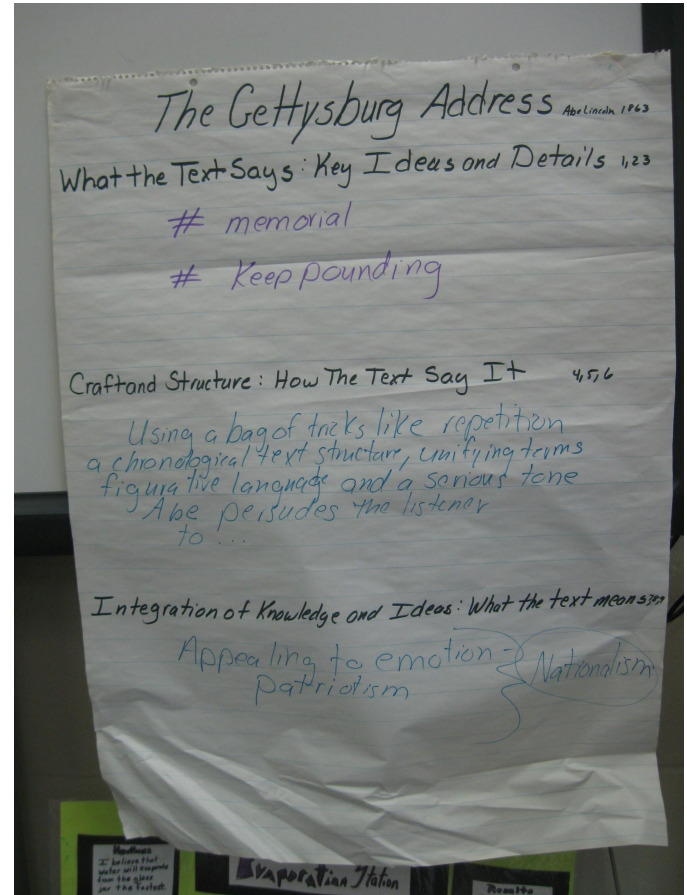 The Gettysburg Address Abe Lincoln 1863
What the Text Says: Key Ideas and Details 1,23
# memorial
# Keep pounding
Craft and Structure: How The Text Say It 4,5,6
Using a bag of tricks like repetition
a chronological text structure, unifying terms
figurative language and a serious tone
Abe persudes the listener
to ...
Integration of Knowledge and Ideas: What the text means
Appealing to emotion - Nationalism
patriotism
I believe that
water will evaporate
from the glass
jar the fastest.
Evaporation Station
Results